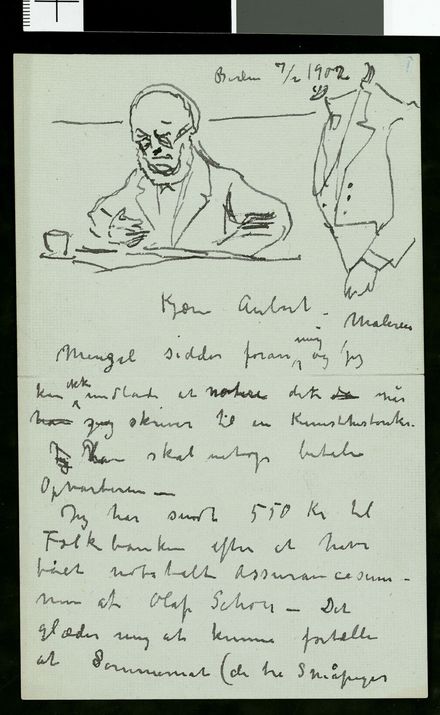 Berlin 7/2 1902
Kjære Aubert –
Maleren
Menzel sidder foran mig og jeg
kan ikke undlade at notere det da når
han jeg skriver til en Kunsthistoriker.
Han skal netop betale
Opvarteren —
Jeg har sendt 550 Kr til
Folkebanken efter at have
fået udbetalt Assurancesum-
men af Olaf Schou – Det
glæder mig at kunne fortælle
at Sommernat (de tre Småpiger